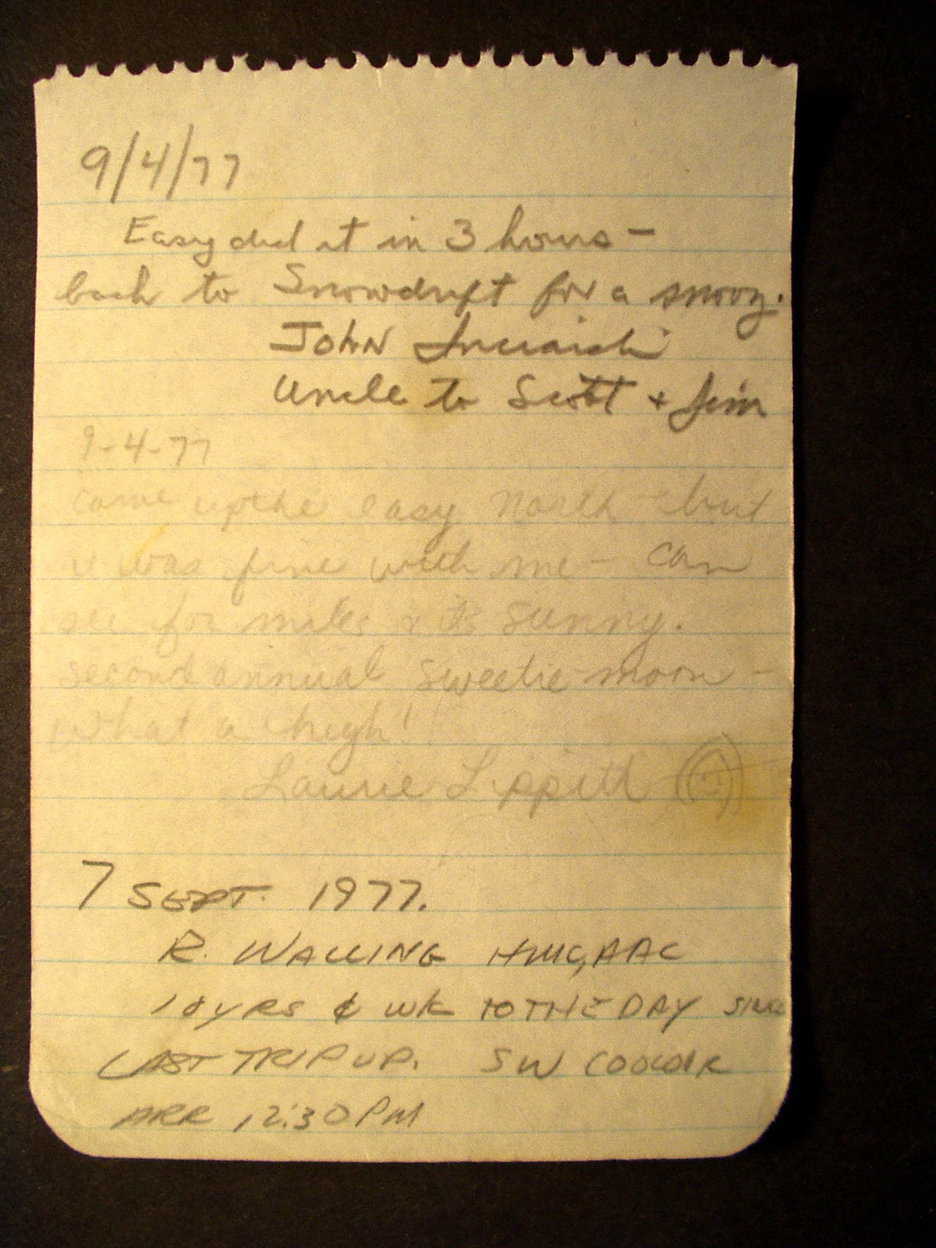 9/4/77
Easy did it in 3 hours -
back to Snowdrift for a snooz.
John
Uncle to Scott + Jim
9-4-77
came up the easy North - but
it was fine with me - can
see for miles & it's sunny.
second annual sweetie-moon -
What a high!
Laurie Lippitt
7 SEPT. 1977.
R. WALLING HMC, AAC
10 YRS & WK TO THE DAY SINCE
LAST TRIP UP. SW COULOIR
ARR 12:30 PM